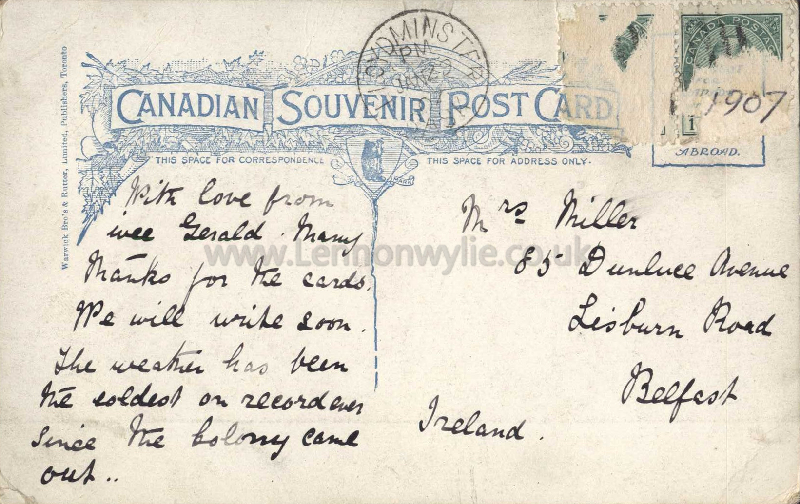 LLOYDMINSTER
PM
JAN 22
CANADA POSTAGE
1907
CANADIAN SOUVENIR POST CARD
1
ABROAD.
THIS SPACE FOR CORRESPONDENCE
THIS SPACE FOR ADDRESS ONLY.
Warwick Bro's & Rutter, Limited, Publishers, Toronto
With love from
wee Gerald. Many
thanks for the cards.
We will write soon.
The weather has been
the coldest on record ever
since the Colony came
out..
Mrs Miller
85 Dunluce Avenue
Lisburn Road
Belfast
Ireland.
www.Lennonwylie.co.uk